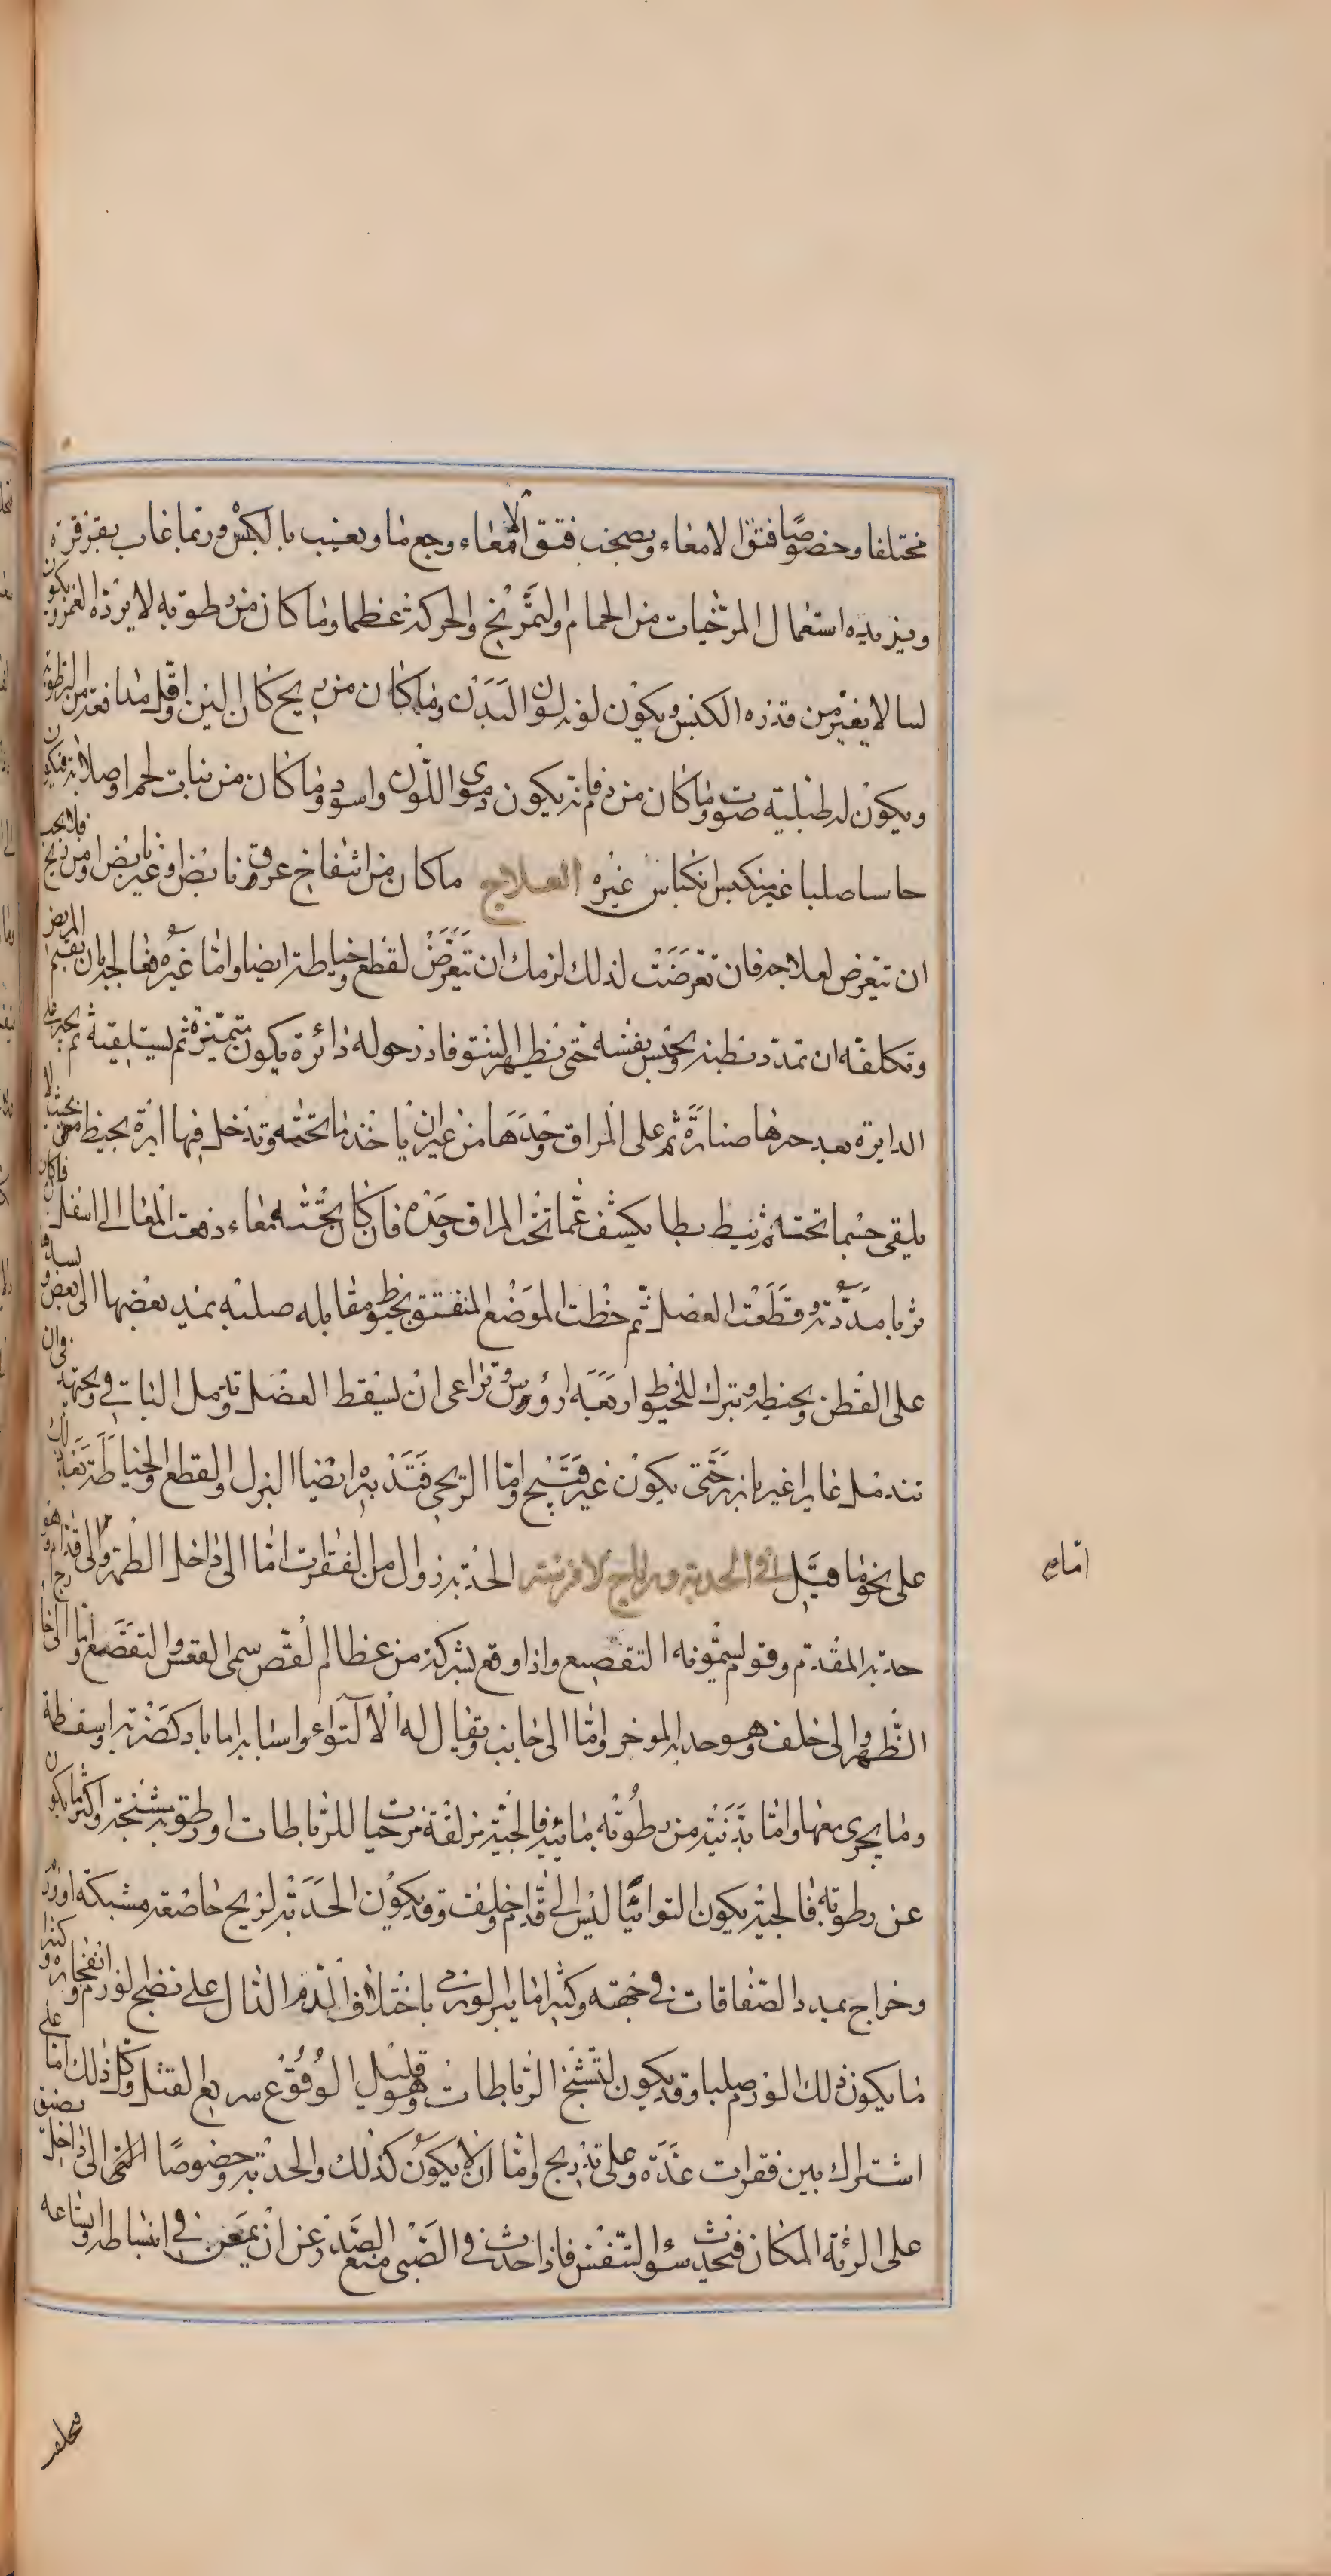 مختلفا وخصوصًا فتق الامعاء ويصحب فتق الامعاء وجع ما ويغيب بالكبس وربما غاب بقرقرة
ويزيده استعمال المرخيات من الحمام والتمريخ والحركة عظما وما كان من رطوبه لا يرده الغمز ويكون
لسا لا يغير من قدره الكبس ويكون لونه لون البدن وما كان من ريح كان الين واقل مدافعة من الرطوبة
ويكون له طبلية صوت وما كان من دم فانه يكون دموى اللون واسود وما كان من نبات لحم او صلابة فيكون
جاسا صلبا غير منكبس انكباس غيره العلاج ما كان من انتفاخ عروق نابض او غير نابض او من ريح فلا يجب
ان تتعرض لعلاجه فان تعرضت لذلك لزمك ان تتعرض لقطع وخياطة ايضا واما غيره فعالجه بان تقيم المريض
وتكلفه ان تمدد بطنه بحبس نفسه حتى يظهر النتو فادر حوله دائرة يكون متميزة ثم يستلقيه ثم يجر على
الدايرة بعد حرها صنارة ثم على المراق وحدها من غير ان ياخذ ما تحته وتدخل فيها ابرة بخيط من بحيث لا
يلقى جسما تحته ثم يبط بطا يكشف عما تحت المراق وحده فان كان تحته معاء دفعت المعا الى اسفل فان كان
ثربا مددته وقطعت الفضل ثم خطت الموضع المنفتق بخيوط مقابله صلبه يمد بعضها الى بعض
على القطن ويخيطه ويترك للخيط اربعة ارؤوس ويراعى ان يسقط الفضل ويدمل الباقى ويجتهد فى ان
تندمل غايرا غير بارز حتى يكون غير قبيح واما الريحى فتدبيره ايضا البزل والقطع والخياطة
على نحو ما قيل فى الحدبة ورياح الافرسة الحدبة زوال من الفقرات اما الى داخل الظهر والى قدام وهو
امامى
حدبة المقدم وقوم يسمونه التقصيع واذا وقع بشركة من عظام القص سمى القعس والتقصع واما الى خارج
الظهر والى خلف وهو حدبة الموخر واما الى جانب ويقال له الالتواء واسبابه اما باد كضربة او سقطة
وما يجرى معها واما بدنية من رطوبة مائية فالجية مزلقة مرخية للرباطات او رطوبة مشنجة واكثر ما يكون
عن رطوبة فالجية يكون التوائيا ليس الى قدام وخلف وقد يكون الحدبة لريح حاصعة مشبكة او ورم
وخراج يمدد الصفاقات فى جهته وكثيرا ما يبرا لورمى باختلاف الدم الدال على نضج لورم وانفجاره وكثيرا
ما يكون ذلك الورم صلبا وقد يكون لتشنج الرباطات وهو قليل الوقوع سريع القتل وكل ذلك اما على
اشتراك بين فقرات عدة وعلى تدريج واما ان لا يكون كذلك والحدبة وخصوصًا التى الى داخل يضيق
على الرئة المكان فيحدث سؤ التنفس فاذا حدث فى الصبى منع الصدر عن ان يمعن فى انبساطه واتساعه